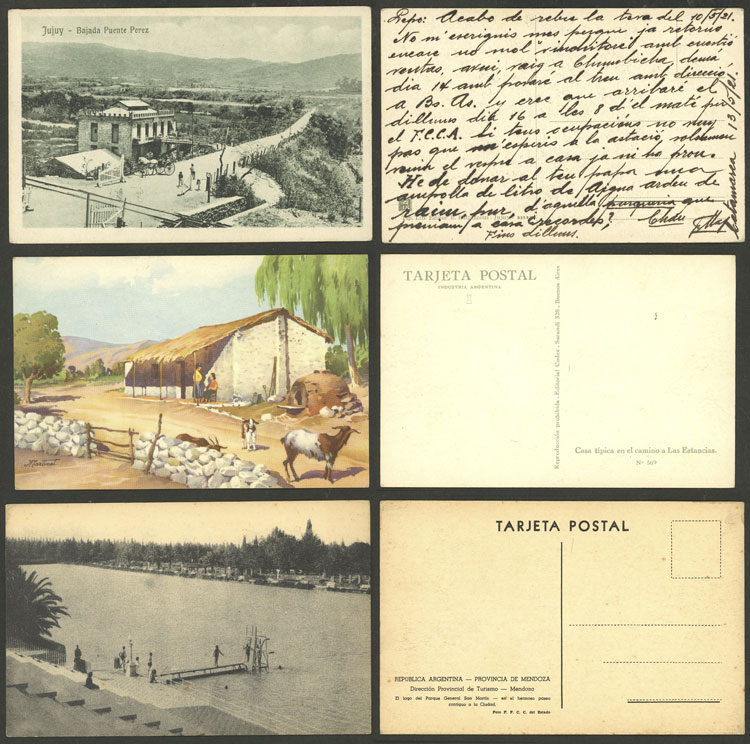 Jujuy - Bajada Puente Perez
Pepe: Acabo de rebre la teva del 10/5/21.
No m'escriguis mes perque ja retorno
encare no mol amb questió
ventas, avui, vaig a Chumbicha, demá
dia 14 amb pendré al tren amb direcció
a Bs. As. y crec que arribaré el
dillluns dia 16 a les 8 d'el matí per
el F.C.C.A. Si teus ocupacións no
pas que m'esperis a la estació,
el vespre a casa ja ni ha prou.
He de donar al teu papa una
ampolla de litro de Aigua arden de
raim pur d'aquella que
a casa recordes?
Fins dilluns.
Catamarca 13/5/21.
TARJETA POSTAL
INDUSTRIA ARGENTINA
Reproducción prohibida - Editorial Cados - Sarandí 328 - Buenos Aires
Casa típica en el camino a Las Estancias.
Nº 569
TARJETA POSTAL
REPUBLICA ARGENTINA — PROVINCIA DE MENDOZA
Dirección Provincial de Turismo — Mendoza
El lago del Parque General San Martín — es el hermoso paseo
contiguo a la Ciudad.
Foto F. F. C. C. del Estado